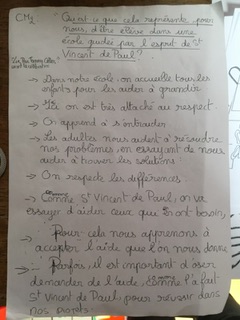 CM2
Qu'est ce que cela représente, pour
nous, d'être élève dans une
école guidée par l'esprit de St
Vincent de Paul?
→ Dans notre école: on accueille tous les
enfants pour les aider à grandir
→ Ici on est très attaché au respect.
→ On apprend à s'entraider
→ Les adultes nous aident à résoudre
nos problèmes, on essayent de nous
aider à trouver les solutions
→ On respecte les différences.
→ Comme St Vincent de Paul, on va
essayer d'aider ceux qui en ont besoin,
→ Pour cela nous apprenons à
accepter l'aide que l'on nous donne
→ Parfois, il est important d'oser
demander de l'aide, comme l'a fait
St Vincent de Paul, pour réussir dans
nos projets.